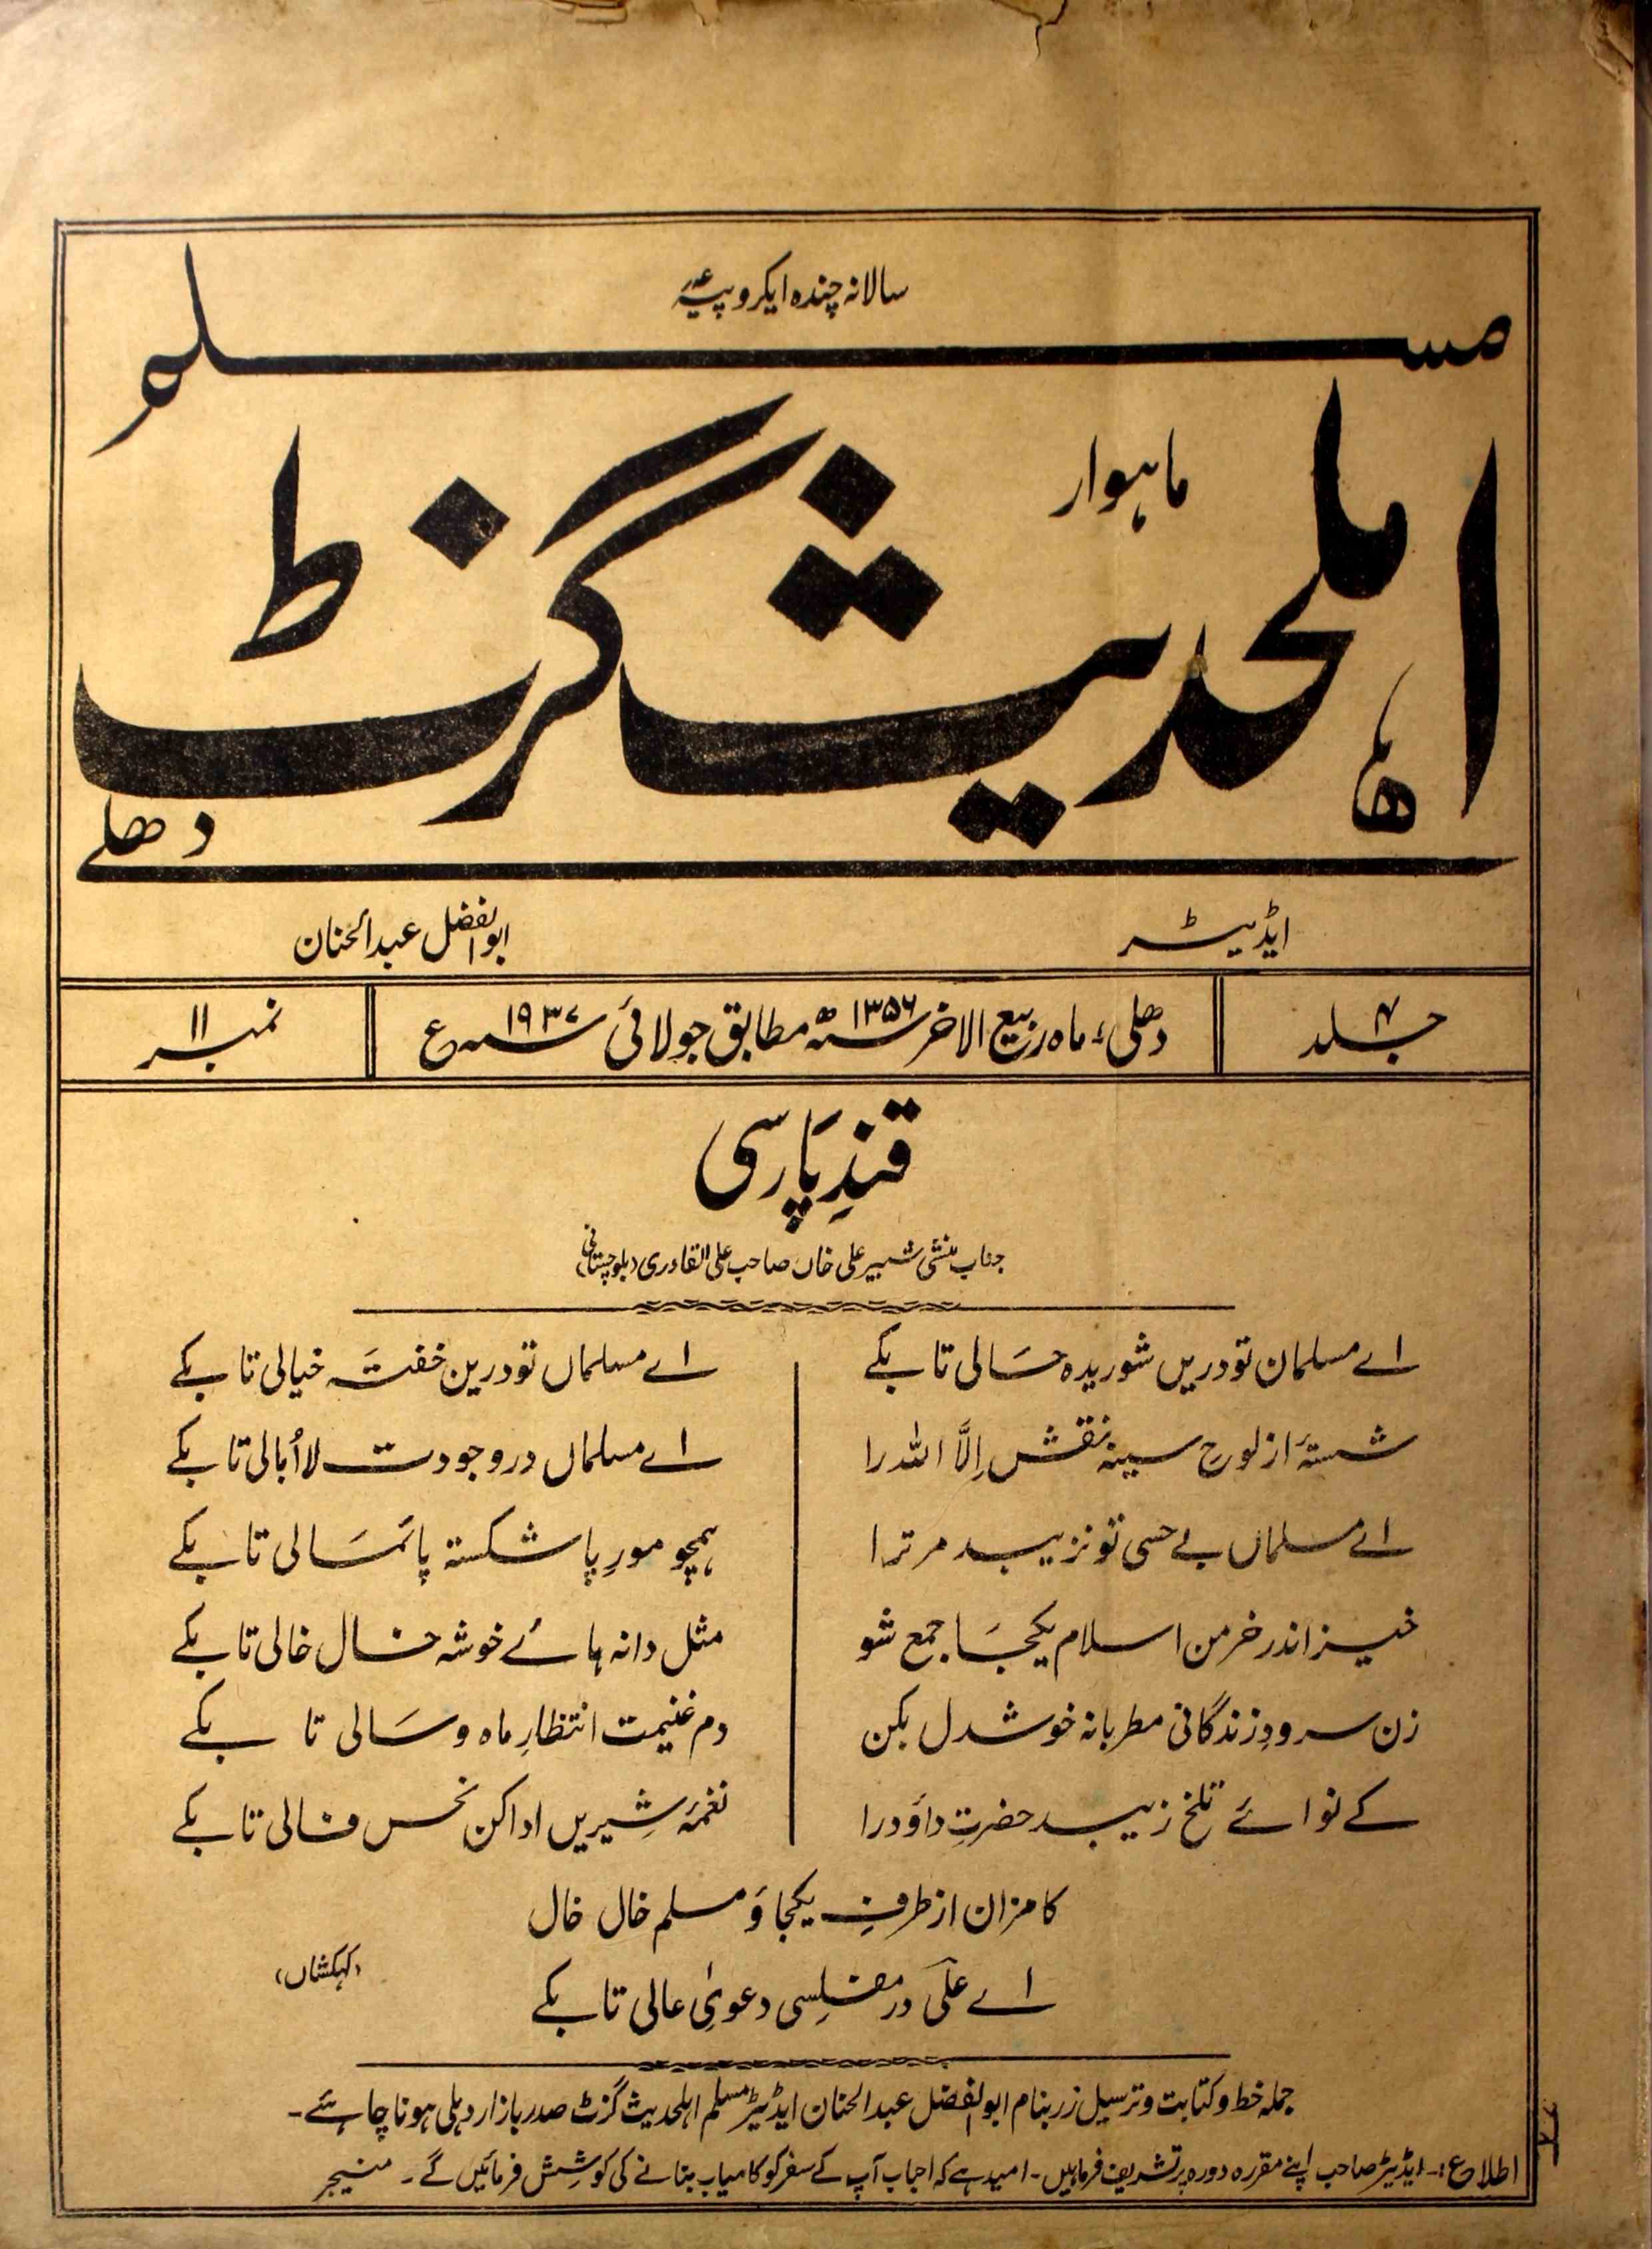 سالانہ چندہ ایکروپیہ
مسلم
ماہوار
اہلحدیث گزٹ
دھلی
ایڈیٹر
ابوالفضل عبدالحنان
جلد ۴
دھلی، ماہ ربیع الاخر سنہ ۱۳۵۶ھ مطابق جولائی سنہ ۱۹۳۷ع
نمبر ۱۱
قندِ پارسی
جناب منشی شبیر علی خاں صاحب علی القادری (بلوچستانی)
اے مسلمان تو دریں شوریدہ حَالی تا بکے
اے مسلماں تو درین خفتَہ خیالی تا بکے
شستۂ از لوحِ سینہ نقش اِلَّا اللہ را
اے مسلماں در وجودت لااُبالی تا بکے
اے مسلماں بے حسی تو نزیبد مر ترا
ہمچو مورِ پا شکستہ پائمَالی تا بکے
خیز اندر خرمن اسلام یکجَا جمع شو
مثل دانہ ہائے خوشہ خال خالی تا بکے
زن سرودِ زندگانی مطربانہ خوشدل بکن
دم غنیمت انتظارِ ماہ و سَالی تا بکے
کے نوائے تلخ زیبد حضرتِ داؤد را
نغمۂ شیریں ادا کن نحس فالی تا بکے
کامزان از طرفِ یکجا وَ مسلم خال خال
اے علیؔ در مفلسی دعویٰ عالی تا بکے
(کہکشاں)
جملہ خط و کتابت و ترسیل زر بنام ابوالفضل عبدالحنان ایڈیٹر مسلم اہلحدیث گزٹ صدر بازار دہلی ہونا چاہئے۔
اطلاع:۔ ایڈیٹر صاحب اپنے مقررہ دورہ پر تشریف فرماہیں۔ امید ہے کہ احباب آپ کے سفر کو کامیاب بنانے کی کوشش فرمائیں گے۔ منیجر